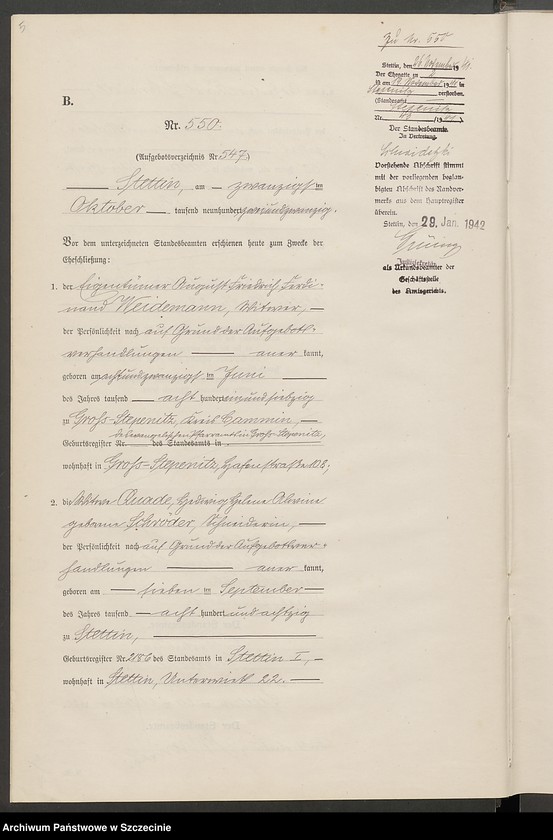 Zu Nr. 550
Stettin, den 19
Der Ehegatte zu 2
ist am 19 in
Stepenitz verstorben.
(Standesamt
Stepenitz
Nr. /19
Der Standesbeamte.
In Vertretung.
Vorstehende Abschrift stimmt
mit der vorliegenden beglau-
bigten Abschrift des Randver-
merks aus dem Hauptregister
überein.
Stettin, den 29. Jan. 1942
Justizsekretär
als Urkundsbeamter der
Geschäftsstelle
des Amtsgerichts.
B.
Nr. 550.
(Aufgebotsverzeichnis Nr. 547.)
Stettin, am zwanzigsten
Oktober tausend neunhundert zweiundzwanzig.
Vor dem unterzeichneten Standesbeamten erschienen heute zum Zwecke der
Eheschließung:
1. der Eigentümer August Friedrich Ferdi-
nand Weidemann, Witwer,
der Persönlichkeit nach auf Grund der Aufgebots-
verhandlungen anerkannt,
geboren am achtundzwanzigsten Juni
des Jahres tausend acht hundert einundsiebzig
zu Groß-Stepenitz, Kreis Cammin,
des evangelischen Pfarramts in Groß-Stepenitz,
Geburtsregister Nr. des Standesamts in
wohnhaft in Groß-Stepenitz, Hafenstraße 108;
2. die Witwe Quade, Hedwig Helene Alwine
geborene Schröder, Schneiderin,
der Persönlichkeit nach auf Grund der Aufgebotsver-
handlungen anerkannt,
geboren am sieben ten September
des Jahres tausend acht hundert undachtzig
zu Stettin,
Geburtsregister Nr. 2186 des Standesamts in Stettin I,
wohnhaft in Stettin, Unterwiek 22.
Archiwum Państwowe w Szczecinie